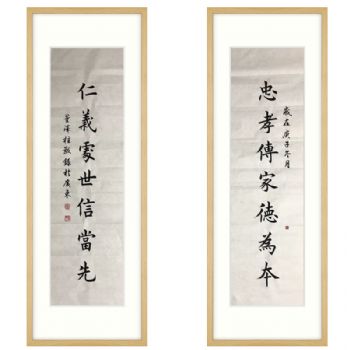 忠孝傳家德為本
歲在庚子冬月
仁義處世信當先
敬錄於廣東